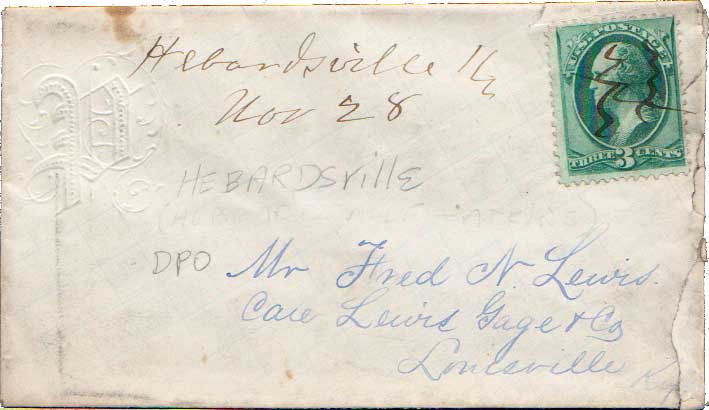 Hebardsville Ky
Nov 28
U.S. POSTAGE
THREE 3 CENTS
HEBARDSVILLE
DPO
Mr Fred N Lewis.
Care Lewis Gage & Co
Louisville
Ky